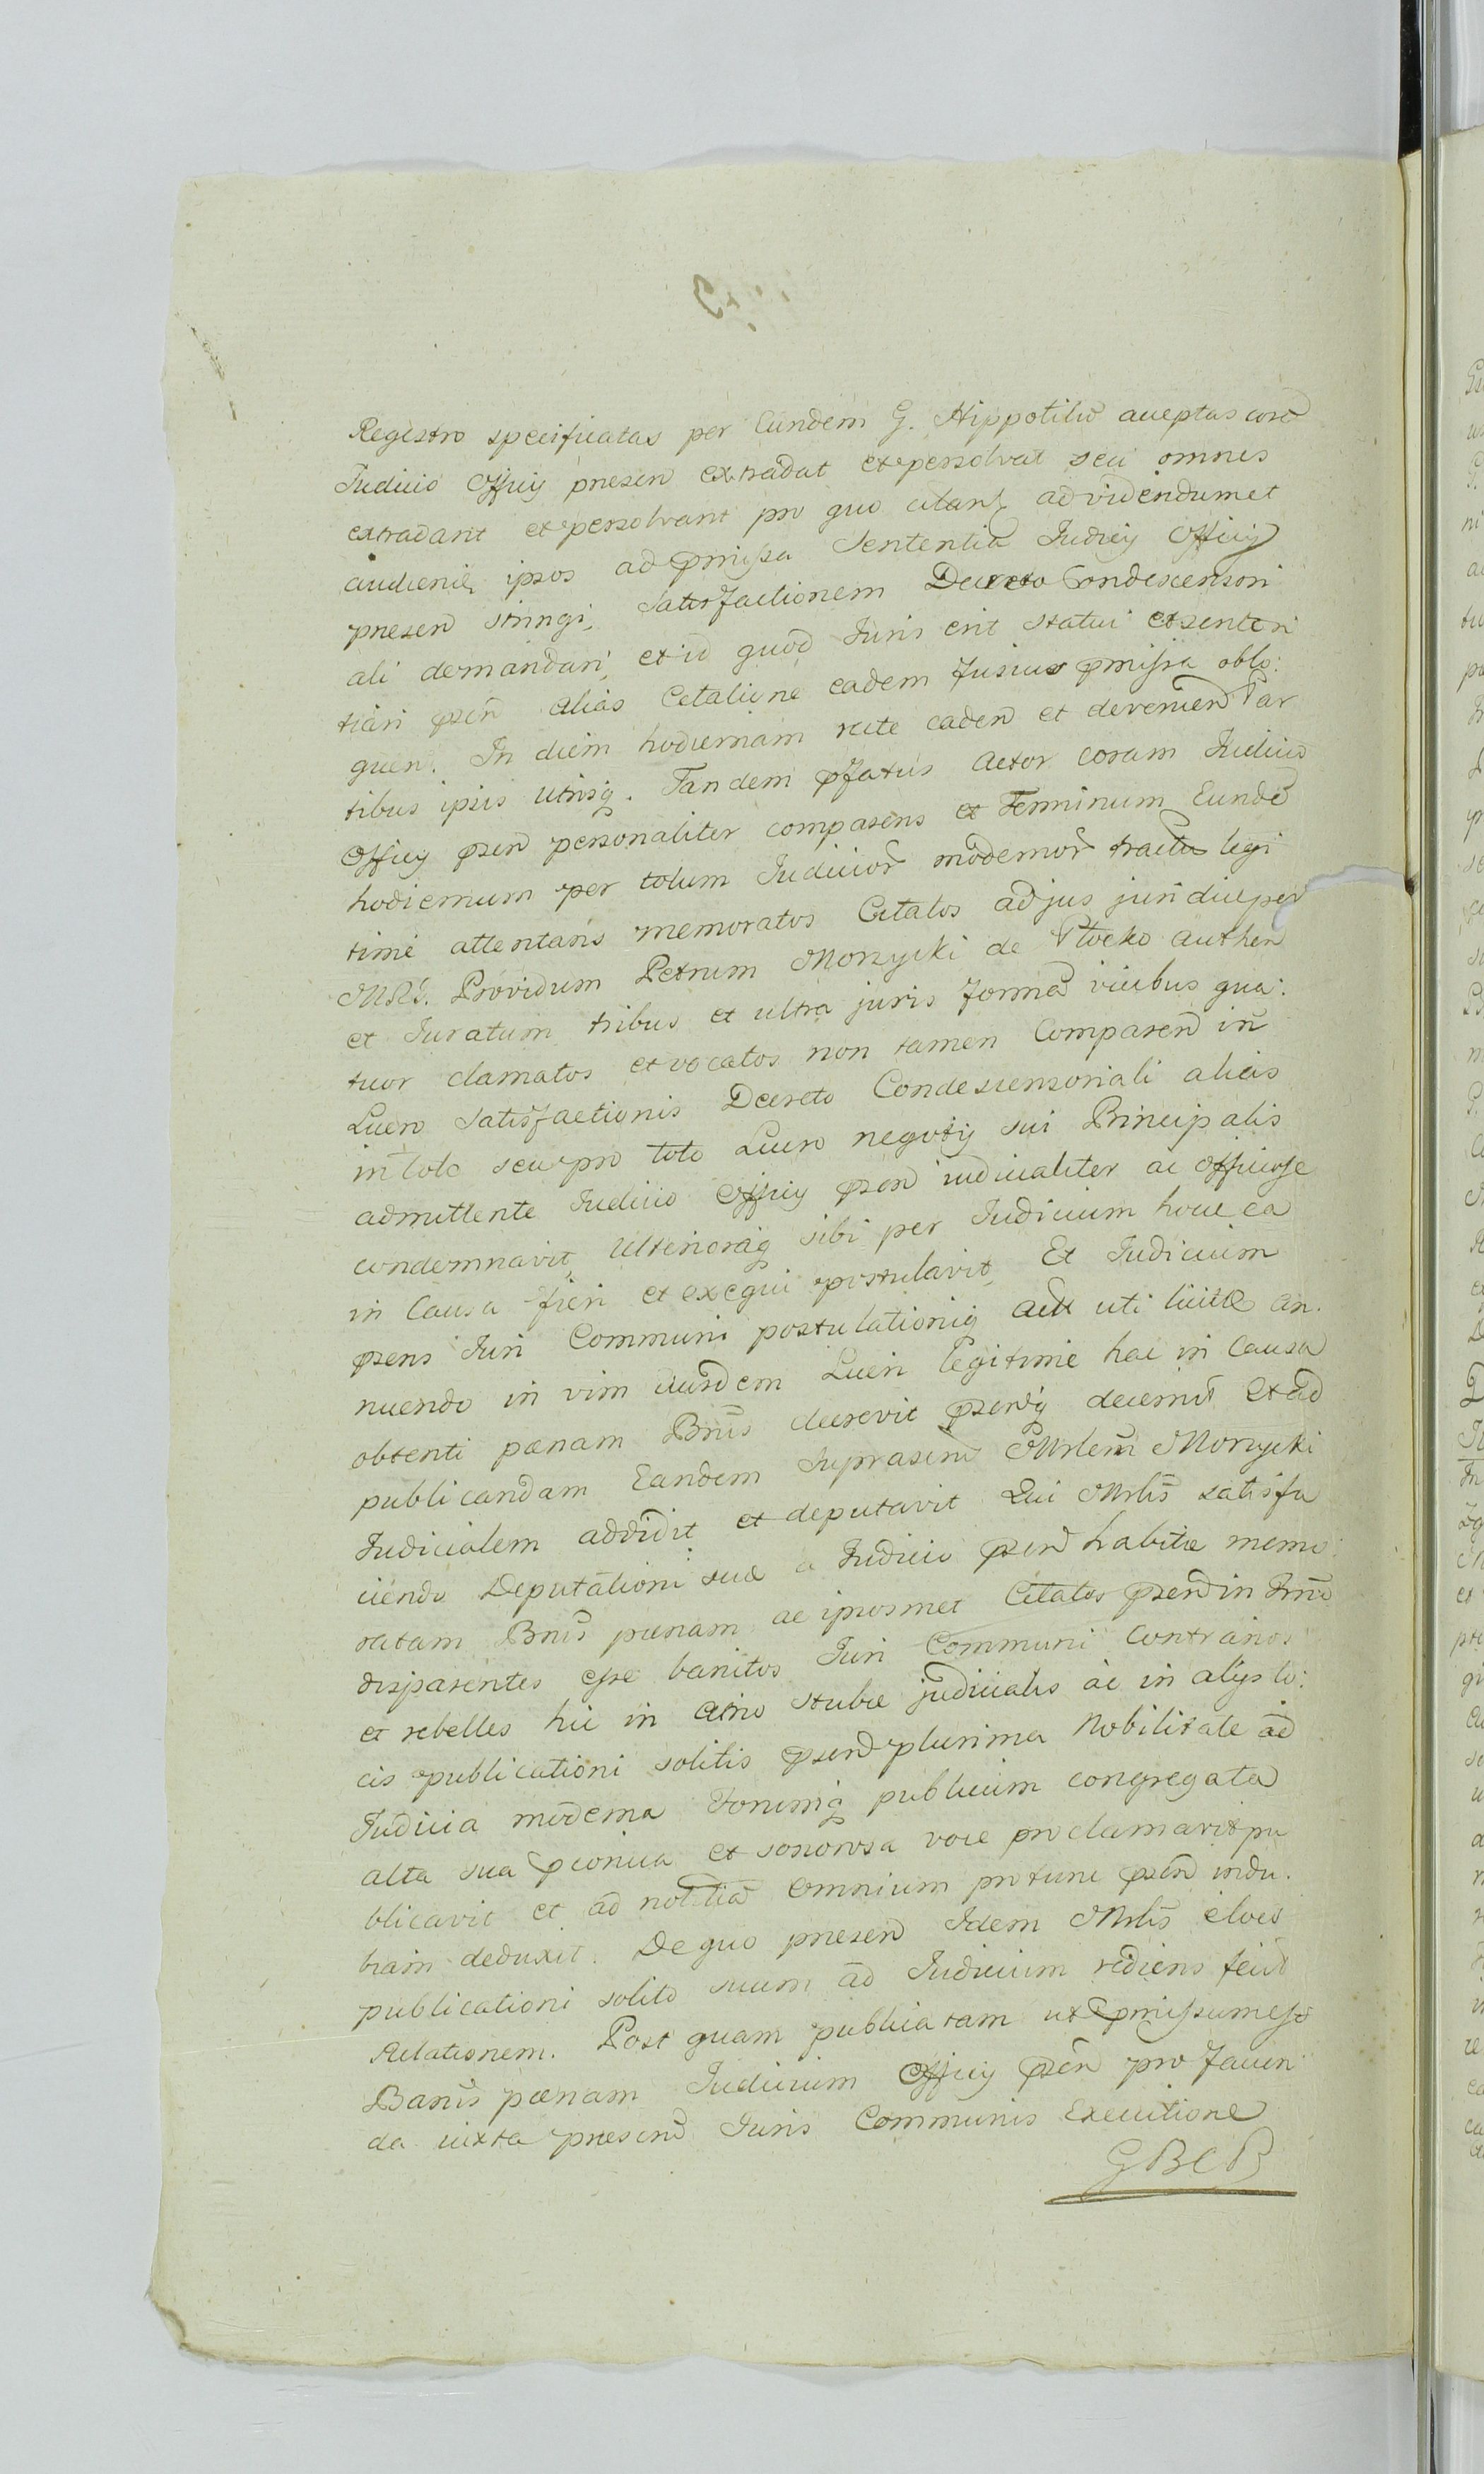 Registro specificatas per Eundem G. Hippolitū acceptas corā
Judicio Officy presen extradat et persolvat seu omnes
extradant et persolvant pro quo citant ad videndum et
audiend ipsos ad pmissa Sententia Judicy Officy
presen stringi, satisfactionem Decreto Condescensori
ali demandari, et id quod Juris erit statui et senten
tiari psen alias Citatione eadem fusius pmissa oblo:
quen. In diem hodiernam rite caden et devenien Par
tibus ipsis utrisq. Tandem pffatus Actor coram Judicio
Officy psen personaliter comparens et Terminum Eundē
hodiernum per totum Judicior modernor tractū legi
time attentans memoratos Citatos ad jus juridice per
MRG. Providum Petrum Morzycki de Plocko authen
et Juratum tribus et ultra juris formā vicibus qua:
tuor clamatos et vocatos non tamen Comparen in
Lucro satisfactionis Decreto Condescensoriali alias
in toto seu pro toto Lucro negotiy sui Principalis
admittente Judicio Officy psen iudicialiter ac officiose
condemnavit, Ulterioraq sibi per Judicium hocce ea
in Causa fieri et exequi postulavit, Et Judicium
psens Juri Communi postulationiq Act uti licitæ an.
nuendo in vim eiusdem Lucri legitime hac in Causa
obtenti pœnam Bnis decrevit psentq decernit Et ad
publicandam Eandem suprascrip Mrlem Morzycki
Judicialem addidit et deputavit Qui Mrlis satisfa
ciendo Deputationi suæ a Judicio psen habitæ memo:
ratam Bnis pœnam ac ipsosmet Citatos psen in Trmo
disparentes esse banitos Juri Communi Contrarios
et rebelles hic in atrio stubæ judicialis ac in alys lo:
cis publicationi solitis psen plurima Nobilitate ad
Judicia moderna Forumq publicum congregata
alta sua pconica et sonorosa voce proclamavit pu
blicavit et ad notitiā omnium protunc psen indu.
biam deduxit. De quo presen Idem Mrlis e loco
publicationi solito suam ad Judicium rediens fecit
Relationem. Post quam publicatam ut pmissum est
Banis pœnam Judicium Officy psen pro facien
da iuxta prescrip Juris Communis Executione
GBCB